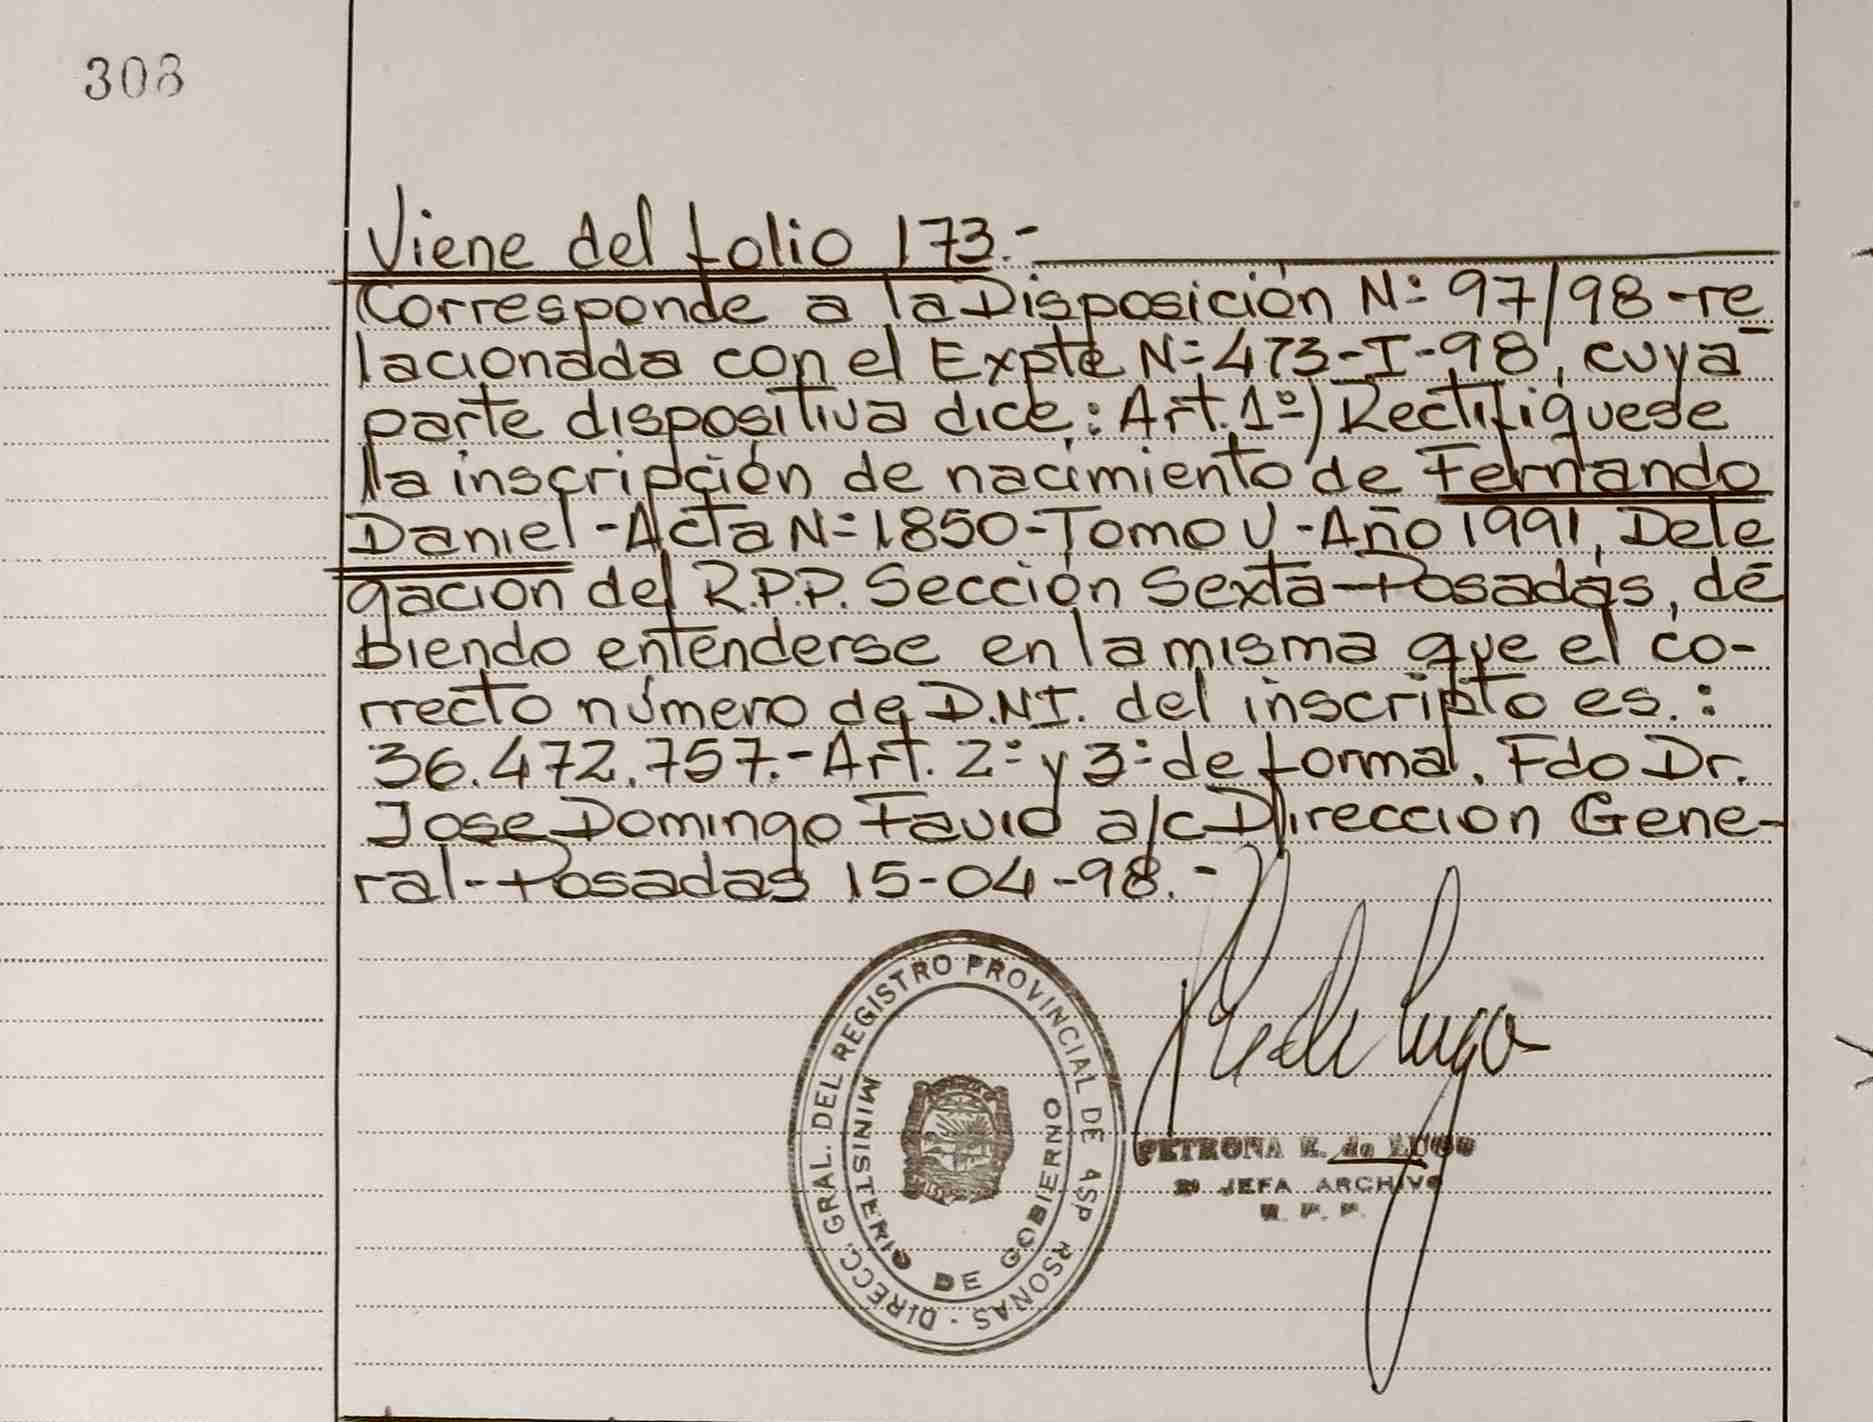 308
Viene del folio 173.-
Corresponde a la Disposición Nº 97/98 -re
lacionada con el Expte Nº 473-I-98, cuya
parte dispositiva dice: Art. 1º) Rectifiquese
la inscripción de nacimiento de Fernando
Daniel - Acta Nº 1850 - Tomo V - Año 1991, Dele
gación del R.P.P. Sección Sexta - Posadas, de
biendo entenderse en la misma que el co-
rrecto número de D.N.I. del inscripto es.:
36.472.757.- Art. 2º y 3º de forma. Fdo Dr.
Jose Domingo a/c Direccion Gene-
ral - Posadas 15-04-98.-
DIRECC. GRAL. DEL REGISTRO PROVINCIAL DE ASP RSONAS
MINISTERIO DE GOBIERNO
PETRONA E. de LUGO
JEFA ARCHIVO
R. P. P.